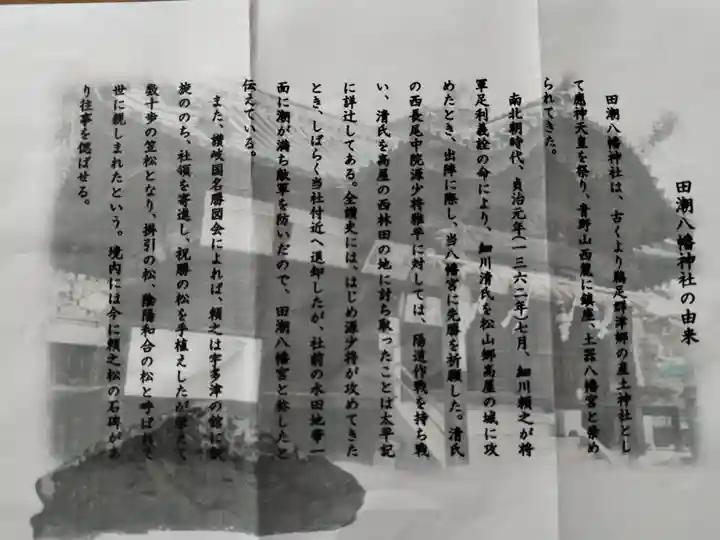 田潮八幡神社の由来
田潮八幡神社は、古くより鵜足群津郷の産土神社とし
て應神天皇を祭り、青野山西麓に鎮座、土器八幡宮と崇め
られてきた。
南北朝時代、貞治元年(一三六二年)七月、細川頼之が将
軍足利義詮の命により、細川清氏を松山郷高屋の城に攻
めたとき、出陣に際し、当八幡宮に先勝を祈願した。清氏
の西長尾中院源少将雅平に対しては、陽道作戦を持ち戦
い、清氏を高屋の西林田の地に討ち取ったことは太平記
に詳辻してある。全讃史には、はじめ源少将が攻めてきた
とき、しばらく当社付近へ退却したが、社前の水田地帯一
面に潮が満ち敵軍を防いだので、田潮八幡宮と称したと
伝えている。
また、讃岐国名勝図会によれば、頼之は宇多津の館に凱
旋ののち、社領を寄進し、祝勝の松を手植えしたが
数十歩の笠松となり、掛引の松、陰陽和合の松と呼ばれて
世に親しまれたという。境内には今に頼之松の石碑があ
り往事を偲ばせる。